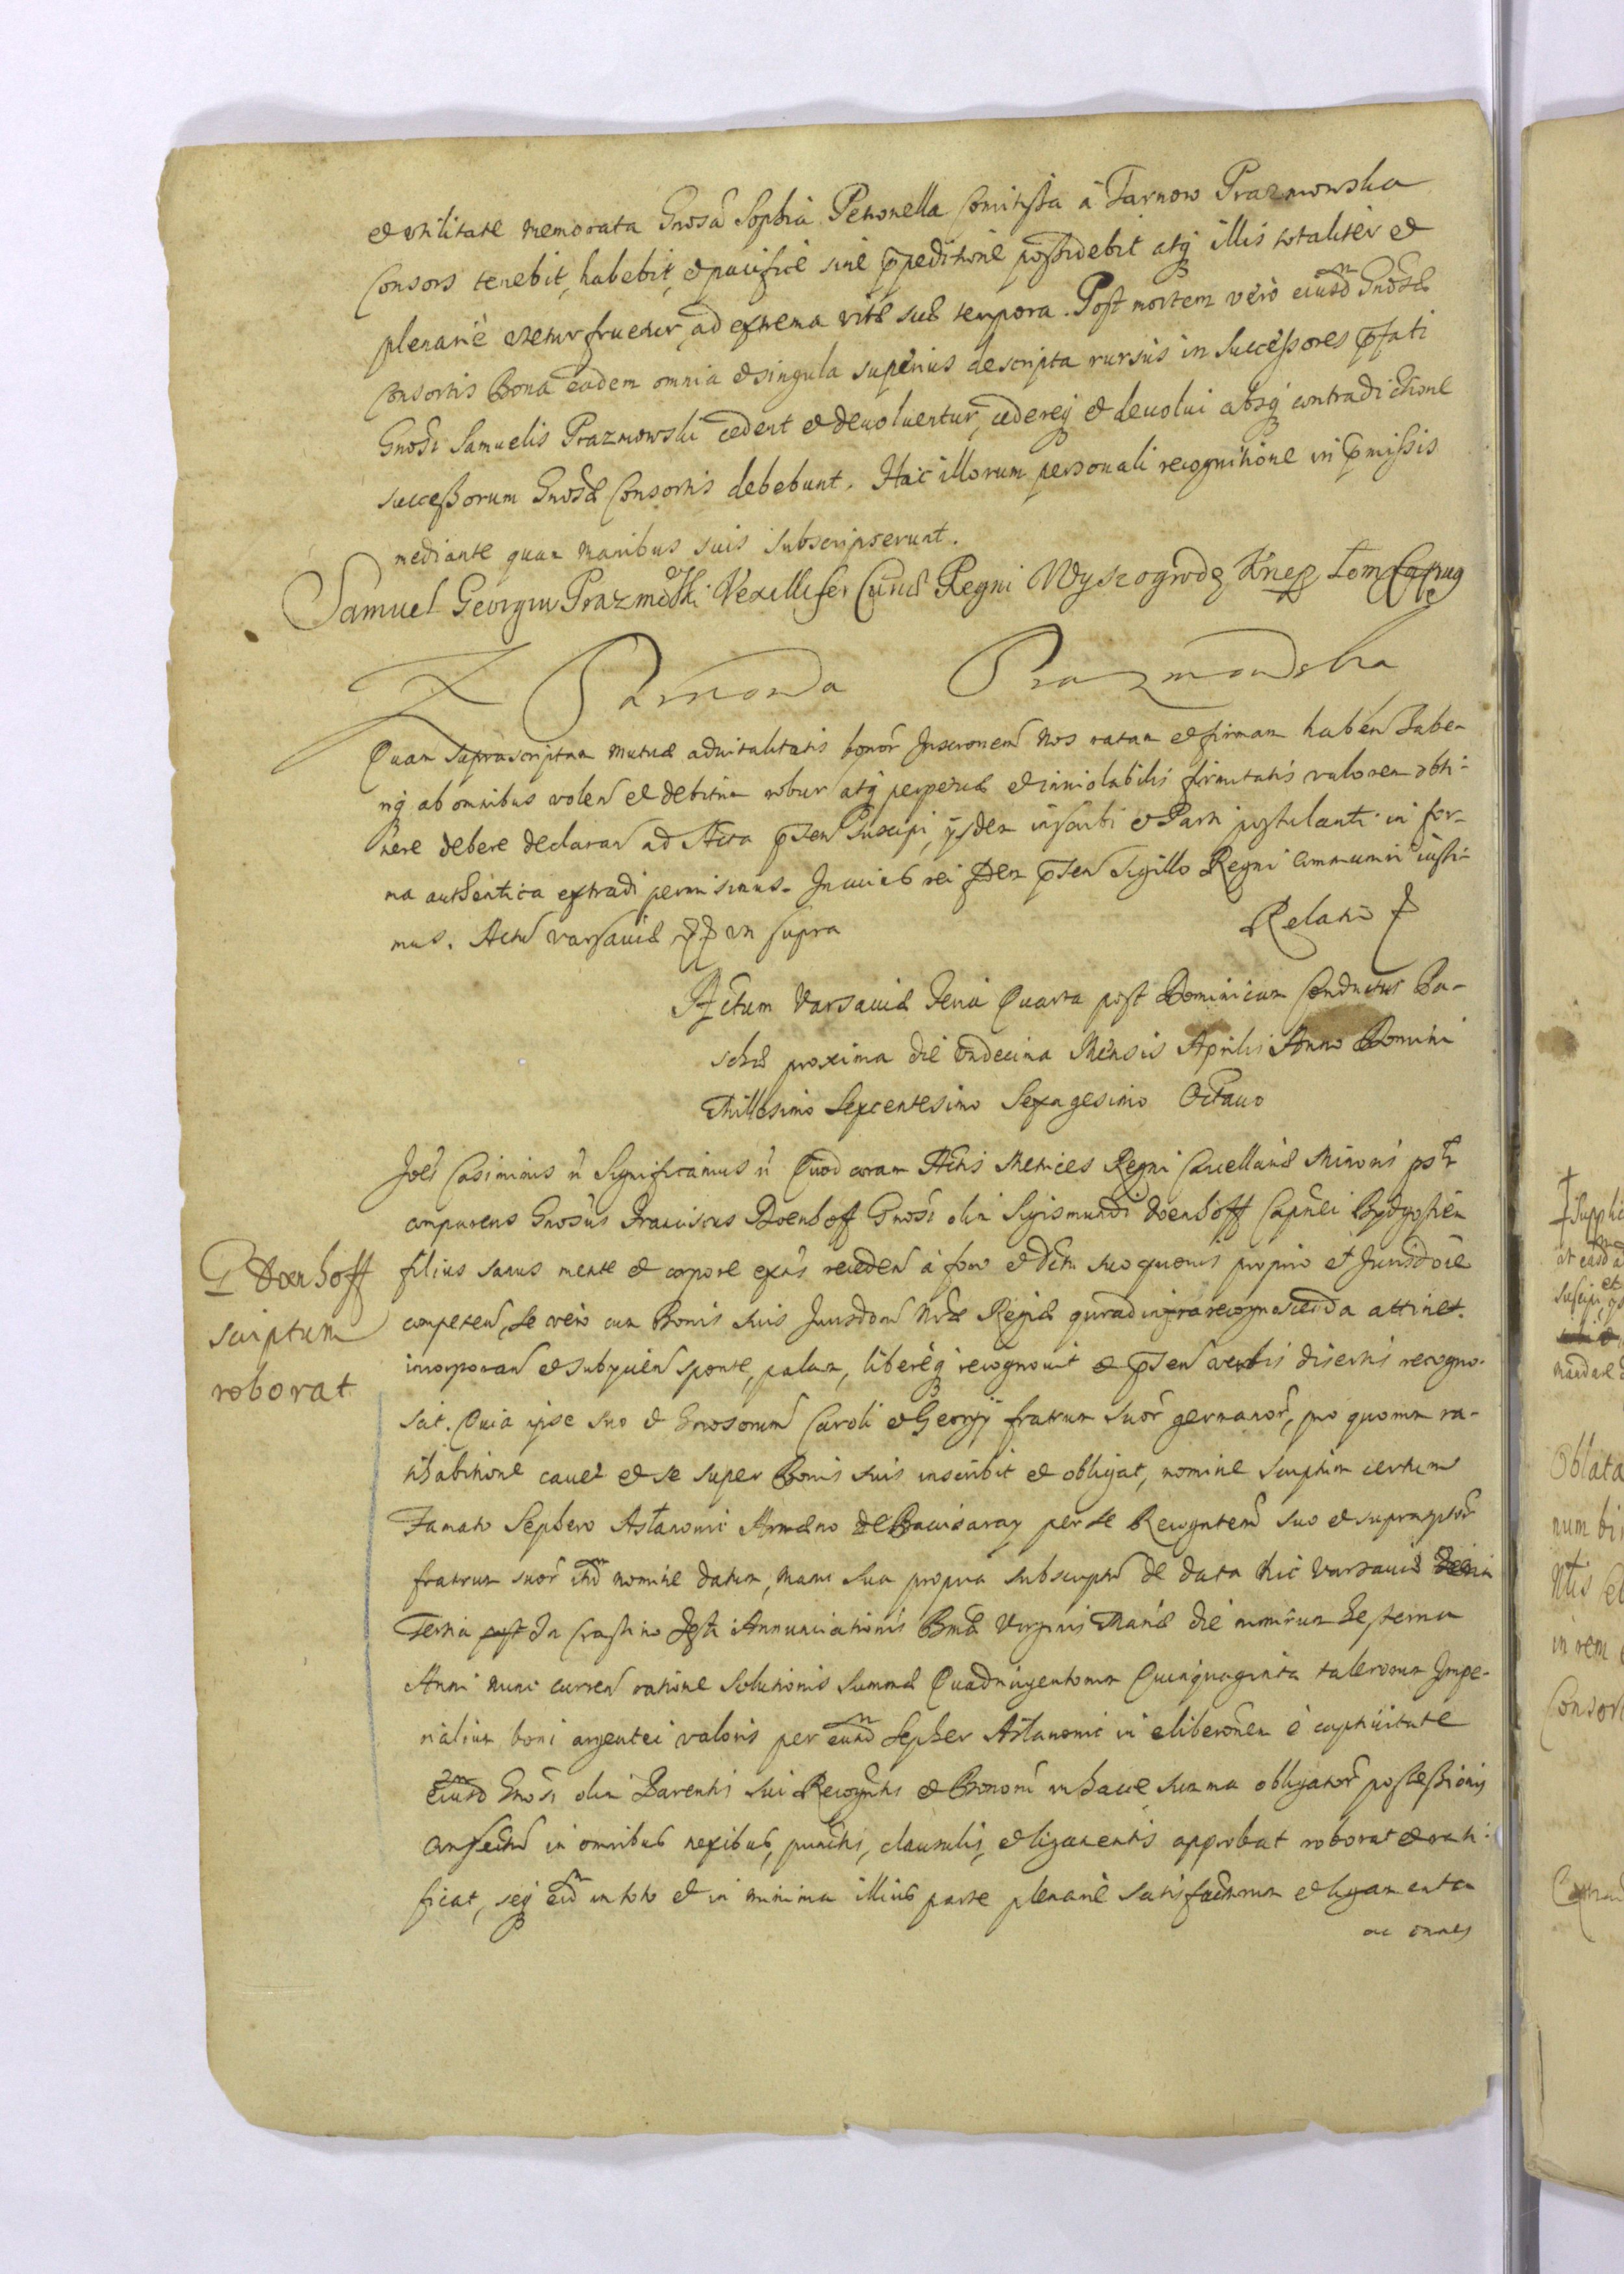 et utilitate memorata Gnosa Sophia Petronella Comitissa à Tarnow Prazmowska
Consors tenebit, habebit, et pacificè sine p̄peditione possidebit atq illis totaliter et
plenariè utetur fruetur, ad extrema vitæ suæ tempora. Post mortem verò eiusdm Gnosæ
Consortis Bona eadem omnia et singula superius descripta rursus in Successores p̄fati
Gnosi Samuelis Prazmowski cedent et devoluentur, cedereq et devolui absq contradictione
successorum Gnosæ Consortis debebunt. Hac illorum personali recognitione in p̄missis
mediante quam manibus suis subscripserunt.
Samuel Georgius Prazmowski Vexillifer Curiæ Regni Wyszogrod
Z Tarnowa Prazmowska
Quam suprascriptam mutuæ advitalitatis bonor Inscronem Nos ratam et firmam haben habe-
riq ab omnibus volen et debitum robur atq perpetuæ et inviolabilis firmitatis valorem obti-
nere debere declaran ad Acta p̄sen suscipi, ysdem inscribi et Parti postulanti in for-
ma authentica extradi permisimus. In cuius rei fidem p̄sen Sigillo Regni communiri iussi-
mus. Actu Varsaviæ ut supra
Relatio
Actum Varsaviæ Feria Quarta post Dominicam Conductus Pa-
schæ proxima die undecima Mensis Aprilis Anno Domini
Millesimo Sexcentesimo Sexagesimo Octavo
Joes Casimirus Significamus Quod coram Actis Metrices Regni Cancellariæ Minoris
comparens Gnosus Franciscus Doenhoff Gnosi olim Sigismundi Doenhoff Capnei Bydgostien
filius sanus mente et corpore exns receden à foro et suo quovis proprio et Jurisdoie
competen, se vero cum Bonis suis Jurisdoni Nræ Regiæ quoad infra recognoscenda attinet.
incorporan et subyicien sponte, palam, liberèq recognovit et p̄sen verbis disertis recogno-
scit. Quia ipse suo et Gnosorum Caroli et Georgy fratrum suor germanor, pro quorum ra-
tihabitione cavet et se super Bonis suis inscribit et obligat, nomine scriptum certum
Famato Sephero Astanowic Armeno de BacciSaray per se Recogntem suo et suprasptor
fratrum suor nomine datum, manu sua propria subscriptu de data hic Varsaviæ
Feria post In Crastino Festi Annunciationis Bmæ Virginis Mariæ die nimirum hesterna
Anni nunc curren ratione solutionis Summæ Quadringentorum Quinquaginta talerorum Impe-
rialium boni argentei valoris per eundm Sepher Astanowic in eliberonem è captivitate
eiusdm Gnosi olim Parentis sui Recogntis et Bonorum in hacce summa obligator possessionis
confectum in omnibus nexibus, punctis, clausulis, et ligamentis approbat roborat et rati-
ficat, seq eidm in toto et in minima illius parte plenariè satisfacturum et ligamenta
ac omnes
G Doenhoff
scriptum
roborat
Oblata
num bi
in rem
Consor
mandare